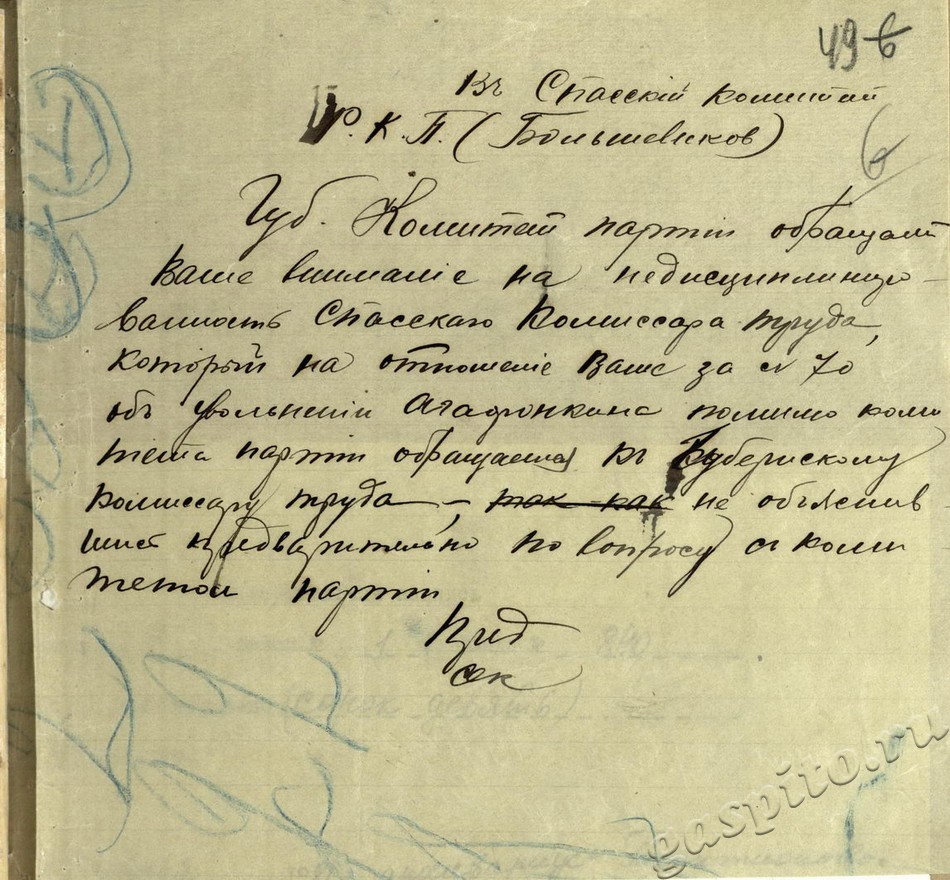 49 6
Въ Спасскій комитет
Р. К. П. (Большевиков)
6
Губ. Комитет партіи обращает
Ваше вниманіе на недисциплиниро-
ванность Спасскаго Комиссара труда,
который на отношеніе Ваше за № 70
объ увольненіи Агафонкина помимо коми
тета партіи обращается къ Губернскому
комиссару труда, – так как не объяснив
шись предварительно по вопросу съ коми
тетом партіи
Пред
сек
gaspito.ru